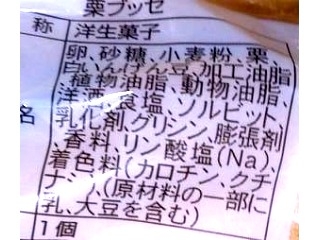 栗ブッセ
称 洋生菓子
名
卵、砂糖、小麦粉、栗、
白いんげん豆、加工油脂、
植物油脂、動物油脂、
洋酒、食塩、ソルビット、
乳化剤、グリシン、膨張剤
、香料、リン酸塩(Na)、
着色料(カロチン、クチ
ナシ)、(原材料の一部に
乳、大豆を含む)
1個